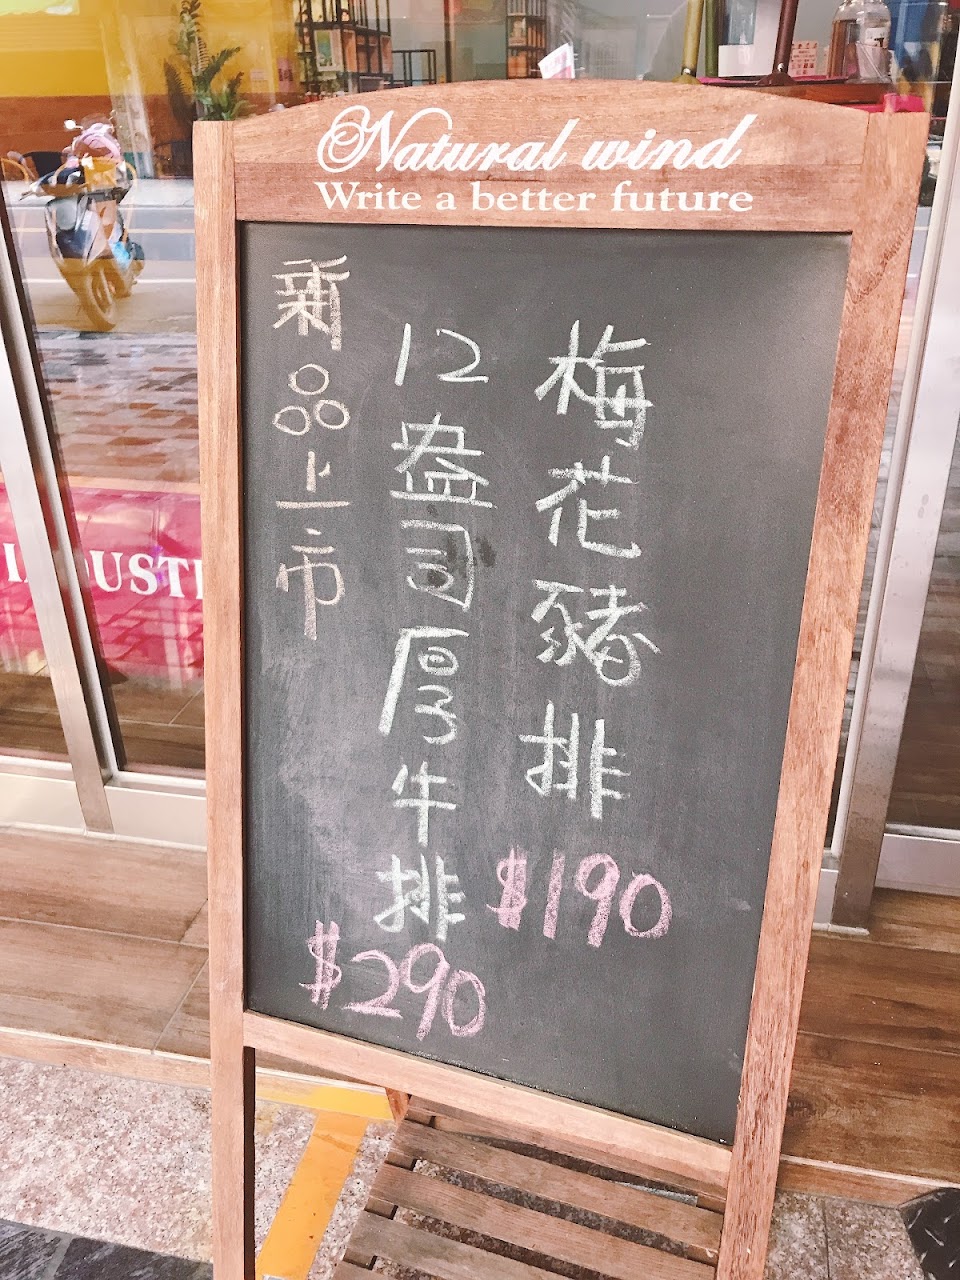 Natural wind
Write a better future
梅花豬排
$190
12盎司厚牛排
$290
新品上市